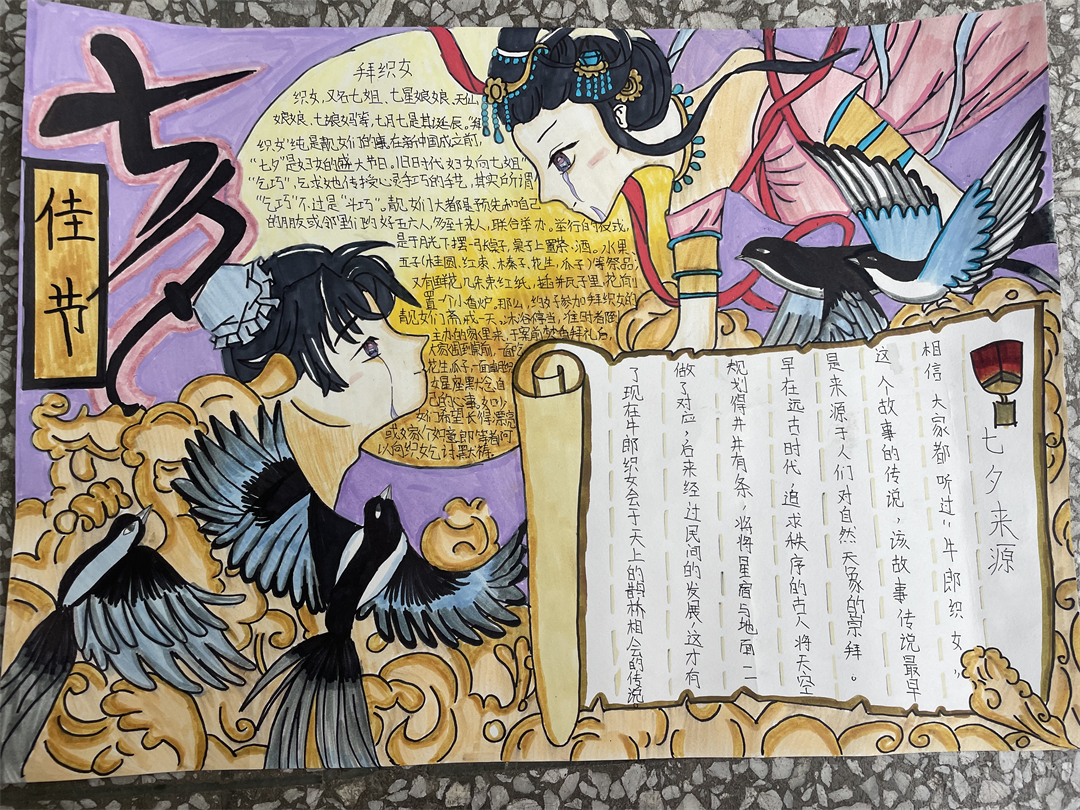 七夕
佳节
拜织女
织女,又名七姐、七星娘娘、天仙
娘娘、七娘妈等,七月七是其诞辰。"拜
织女"纯是靓女们的事在新中国成立前,
"七夕"是妇女的盛大节日,旧日时代妇女向七姐"
"乞巧",乞求她传授心灵手巧的手艺,其实所谓
"乞巧"不过是"斗巧"。靓女们大都是预先和自己
的朋友或邻里们约好五六人,多至十来人,联合举办。举行的仪式,
是于月光下摆一张桌子,桌子上置茶、酒。水果、
五子(桂圆、红枣、榛子、花生、瓜子)等祭品;
又有鲜花几朵束红纸,插在瓦子里,花前
置一个小香炉。那么,约好参加拜织女的
靓女们斋戒一天,沐浴停当,准时都到
主办的家里来,于案前焚香拜礼后,
大家围到桌前,一面吃
花生,瓜子,一面
女星座,默念自
己的心事。如少
女们希望长得漂亮
或嫁个如意郎等,都可
以向织女乞讨默祷。
七夕来源
相信大家都听过"牛郎织女",
这个故事的传说,该故事传说最早
是来源于人们对自然天象的崇拜。
早在远古时代,追求秩序的古人将天空
规划得井井有条,将将星宿与地面一一
做了对应,后来经过民间的发展,这才有
了现在牛郎织女会于天上的鹊桥相会的传说